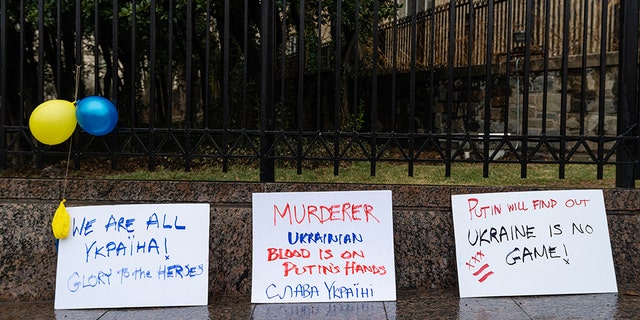 WE ARE ALL
УКРАЇНА!
GLORY TO THE HEROES
MURDERER
UKRAINIAN
BLOOD IS ON
PUTIN'S HANDS
СЛАВА УКРАЇНІ
PUTIN WILL FIND OUT
UKRAINE IS NO
GAME!